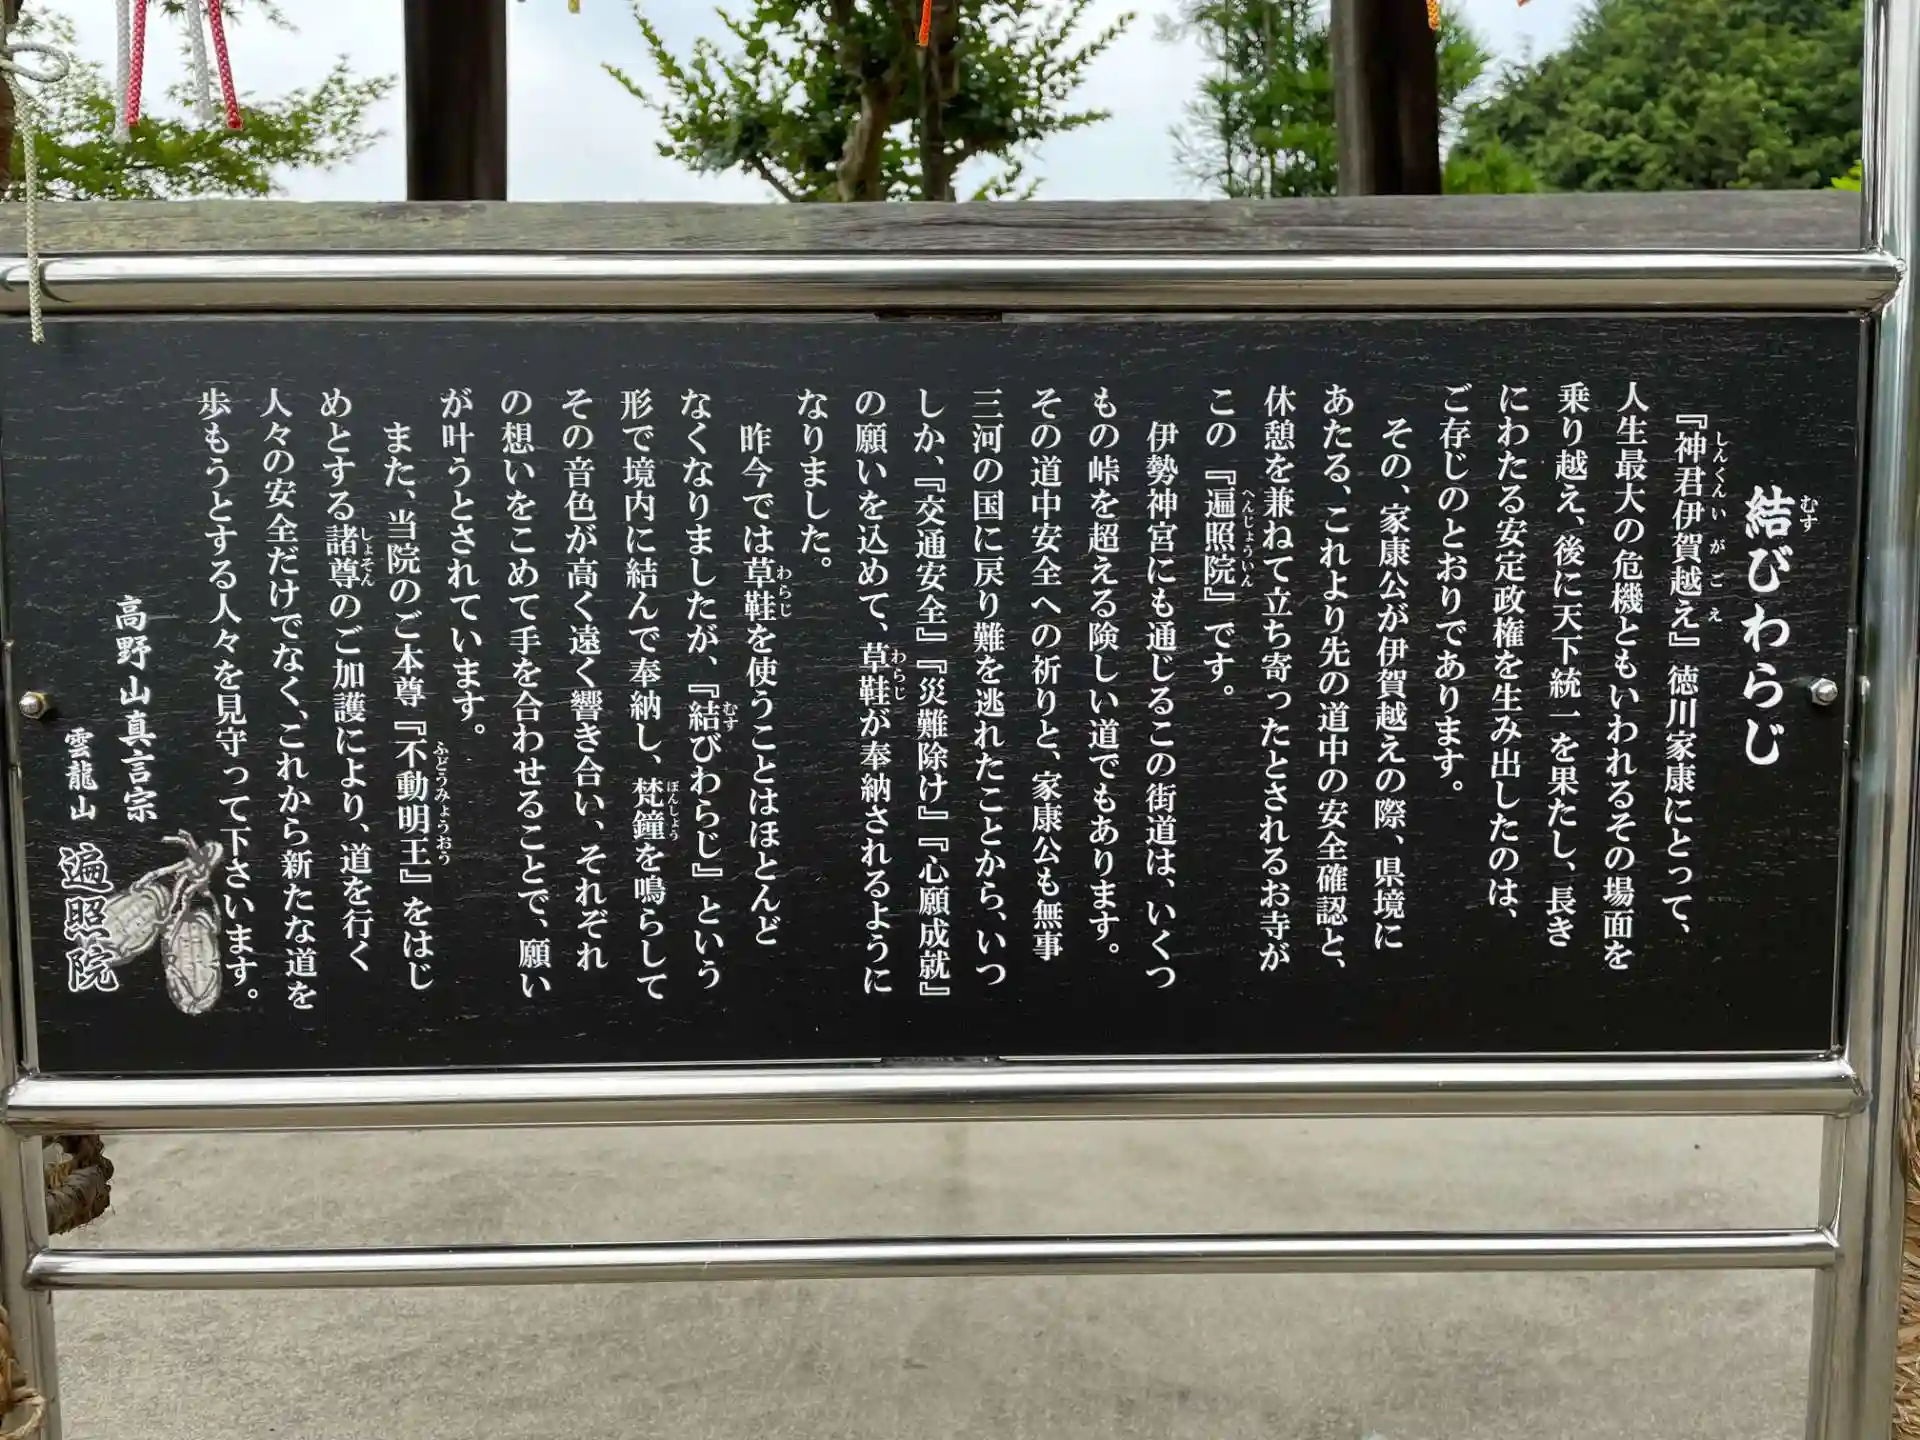 結びわらじ
『神君伊賀越え』徳川家康にとって、
人生最大の危機ともいわれるその場面を
乗り越え、後に天下統一を果たし、長き
にわたる安定政権を生み出したのは、
ご存じのとおりであります。
その、家康公が伊賀越えの際、県境に
あたる、これより先の道中の安全確認と、
休憩を兼ねて立ち寄ったとされるお寺が
この『遍照院』です。
伊勢神宮にも通じるこの街道は、いくつ
もの峠を超える険しい道でもあります。
その道中安全への祈りと、家康公も無事
三河の国に戻り難を逃れたことから、いつ
しか、『交通安全』『災難除け』『心願成就』
の願いを込めて、草鞋が奉納されるように
なりました。
昨今では草鞋を使うことはほとんど
なくなりましたが、『結びわらじ』という
形で境内に結んで奉納し、梵鐘を鳴らして
その音色が高く遠く響き合い、それぞれ
の想いをこめて手を合わせることで、願い
が叶うとされています。
また、当院のご本尊『不動明王』をはじ
めとする諸尊のご加護により、道を行く
人々の安全だけでなく、これから新たな道を
歩もうとする人々を見守って下さいます。
高野山真言宗
雲龍山 遍照院